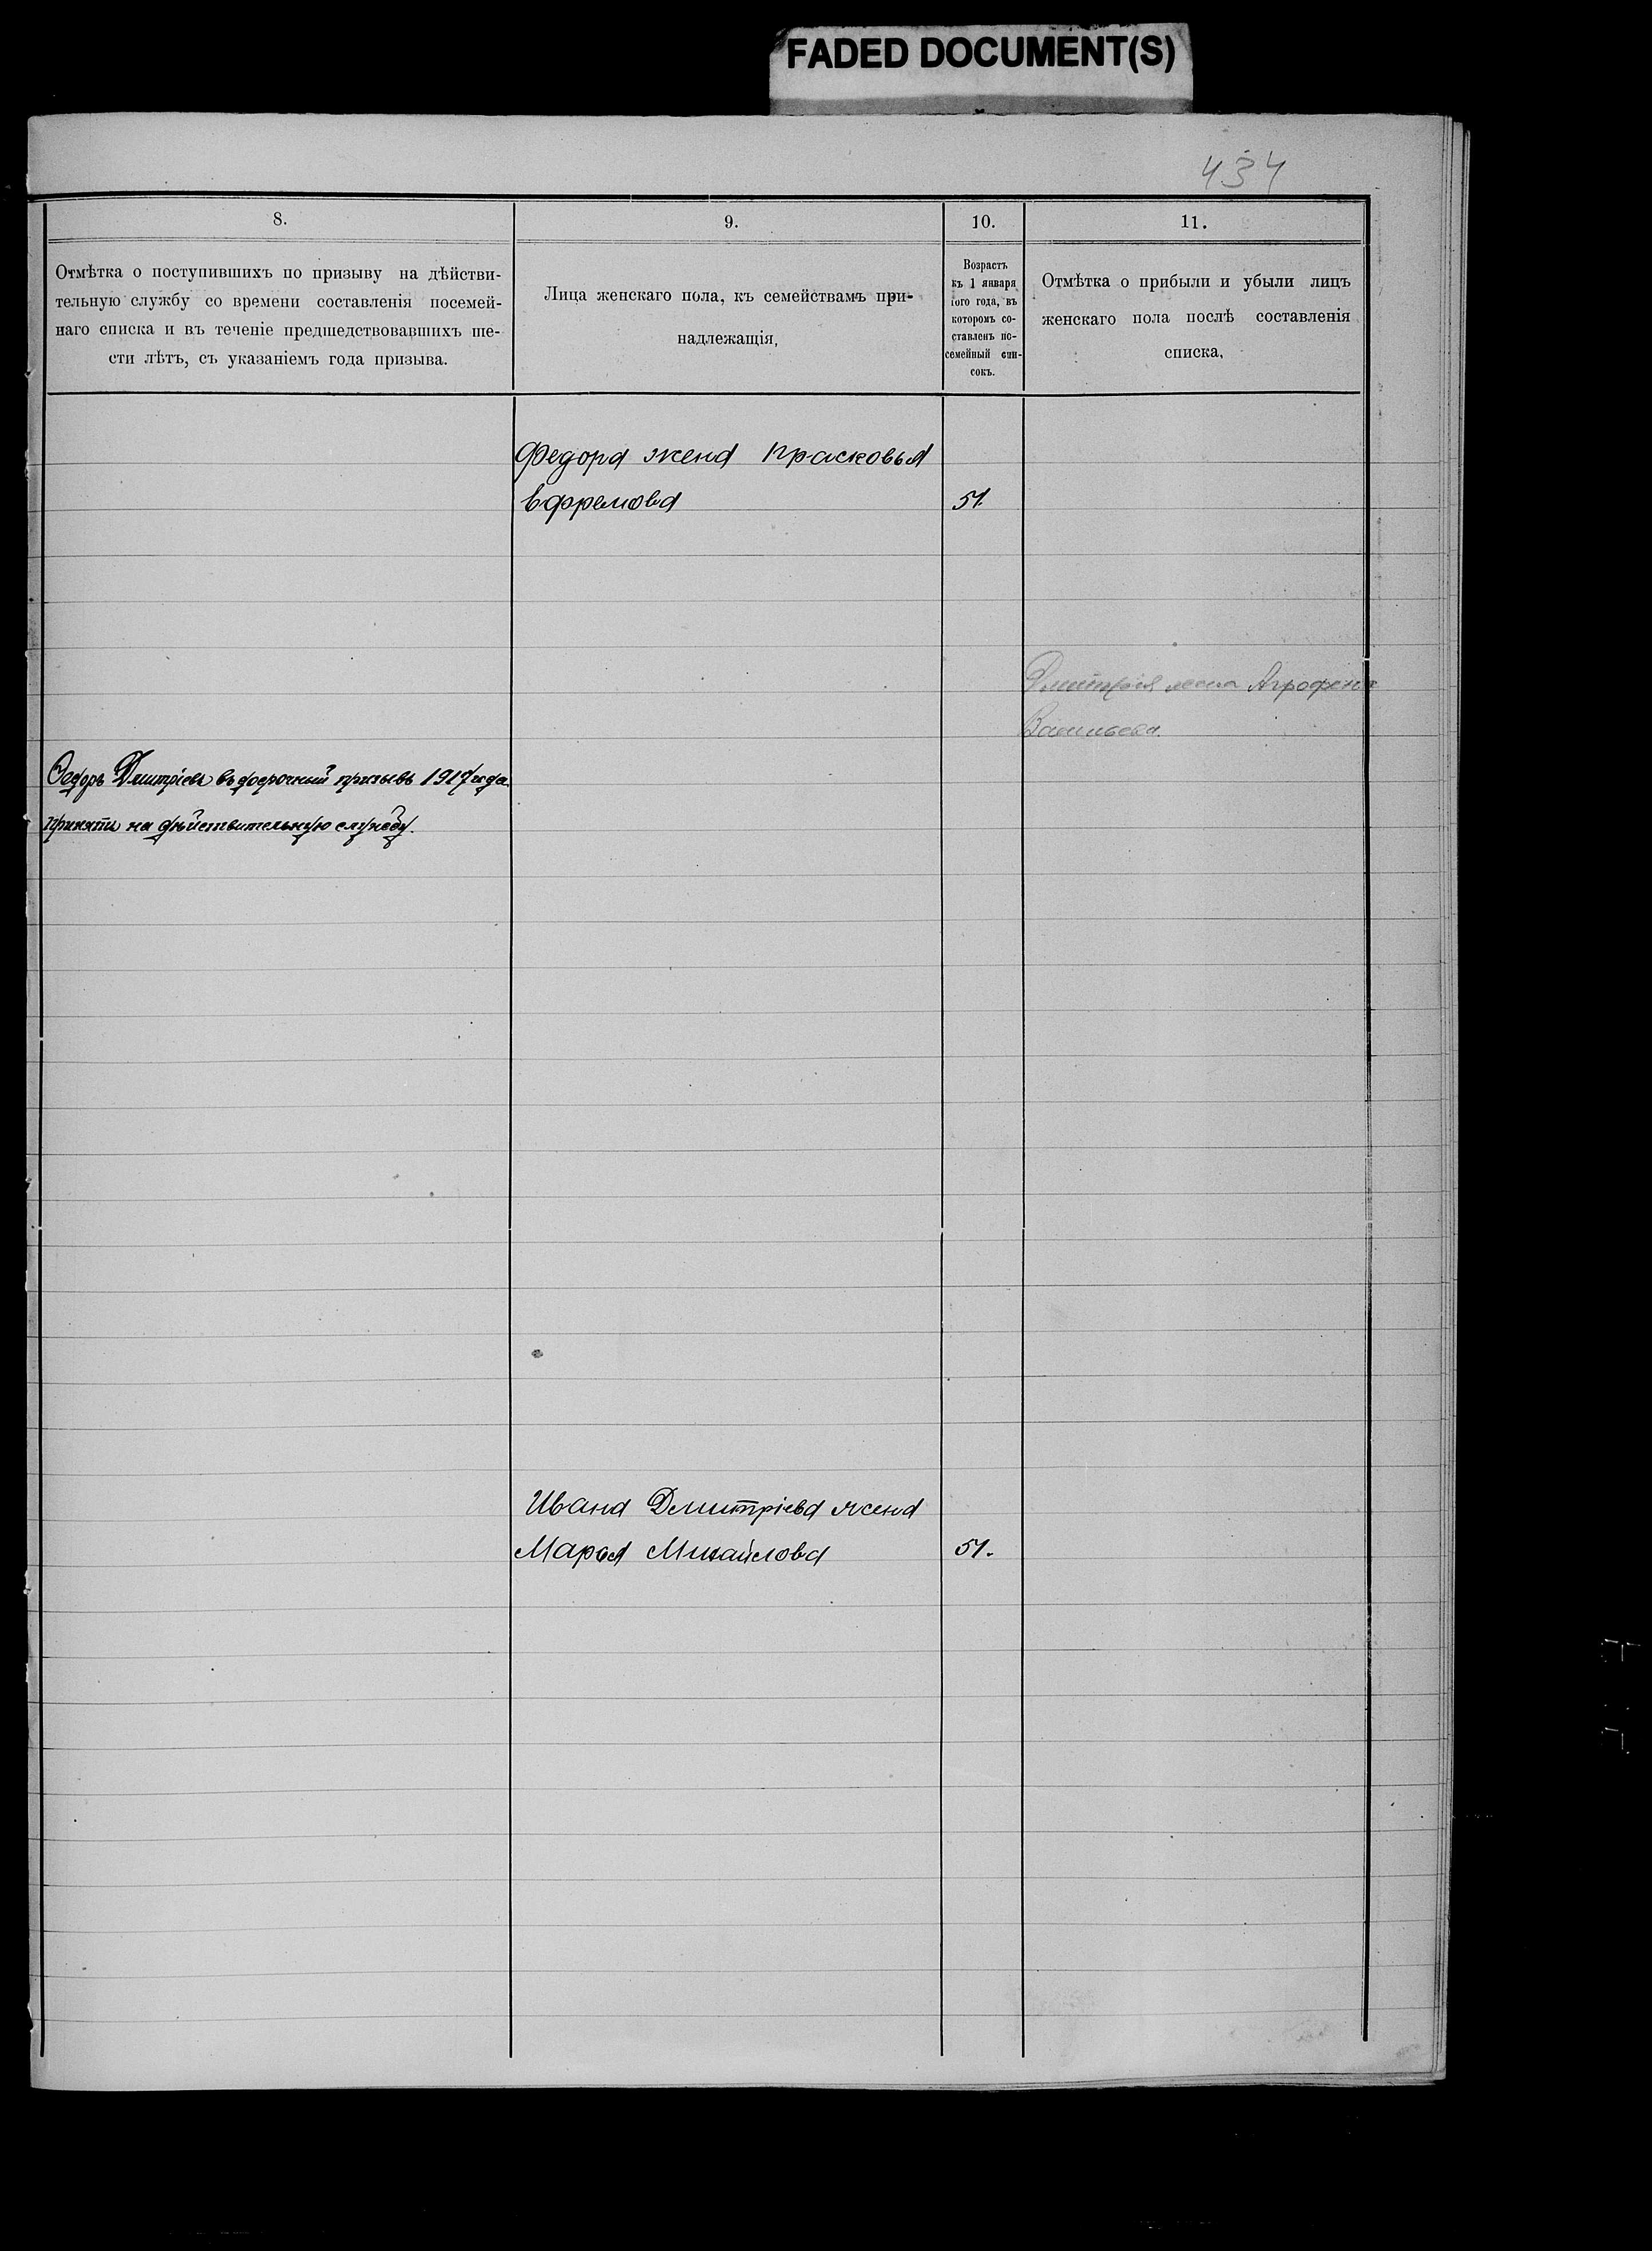 FADED DOCUMENT(S)
434
8.
Отмѣтка о поступившихъ по призыву на дѣйстви-
тельную службу со времени составленія посемей-
наго списка и въ теченіе предшедствовавшихъ ше-
сти лѣтъ, съ указаніемъ года призыва.
9.
Лица женскаго пола, къ семействамъ при-
надлежащія,
10.
Возрастъ
къ 1 января
того года, въ
которомъ со-
ставленъ по-
семейный спи-
сокъ.
11.
Отмѣтка о прибыли и убыли лицъ
женскаго пола послѣ составленія
списка,
Федора жена Прасковья
Ефремова 51.
Дмитрія жена Агрофена
Васильева.
Ѳедоръ Дмитріевъ въ досрочный призывъ 1917 года
принятъ на дѣйствительную службу.
Ивана Дмитріева жена
Марья Михайлова 51.